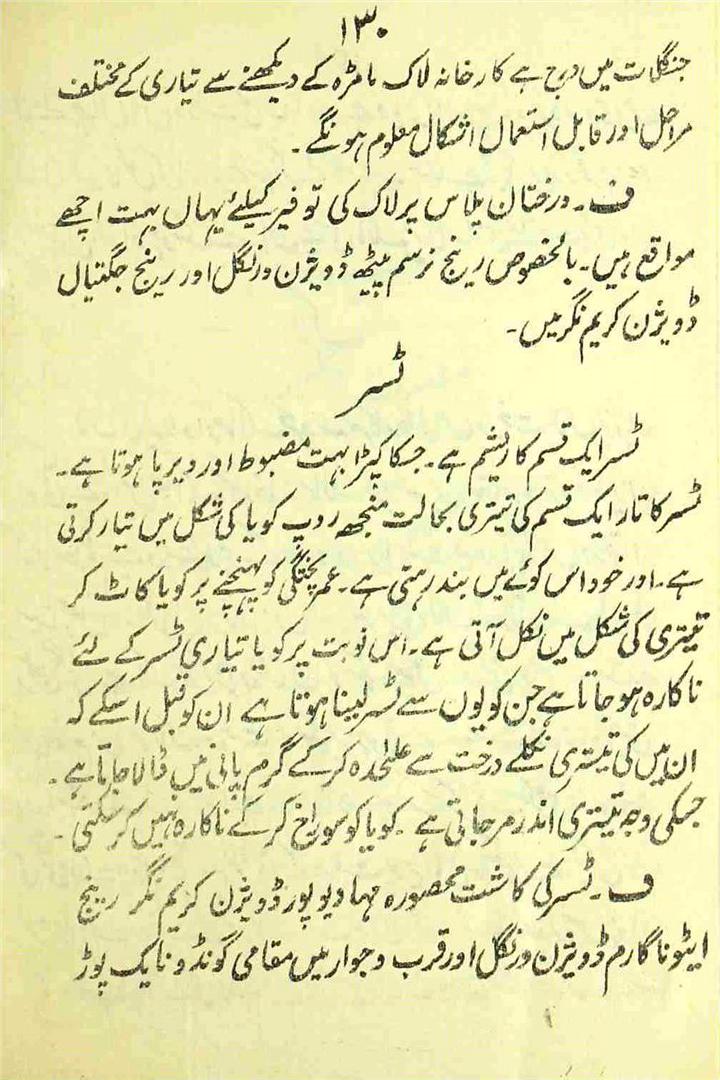 ۱۳۰
جنگلات میں درج ہے کارخانہ لاک مامڑہ کے دیکھنے سے تیاری کے مختلف
مراحل اور قابل استعمال اشکال معلوم ہونگے۔
ف۔ درختان پلاس پر لاک کی توفیر کیلئے یہاں بہت اچھے
مواقع ہیں۔ بالخصوص رینج نرسم پیٹھ ڈویژن ورنگل اور رینج جگتیال
ڈویژن کریم نگر میں۔
ٹسر
ٹسر ایک قسم کا ریشم ہے۔ جسکا کپڑا بہت مضبوط اور دیرپا ہوتا ہے۔
ٹسر کا تار ایک قسم کی تیتری بحالت منجھ روپ کویا کی شکل میں تیار کرتی
ہے۔ اور خود اس کوئے میں بند رہتی ہے۔ عمر پختگی کو پہنچنے پر کویا کاٹ کر
تیتری کی شکل میں نکل آتی ہے۔ اس نوبت پر کویا تیاری ٹسر کے لئے
ناکارہ ہو جاتا ہے جن کویوں سے ٹسر لینا ہوتا ہے ان کو قبل اسکے کہ
ان میں کی تیتری نکلے درخت سے علٰحدہ کرکے گرم پانی میں ڈالا جاتا ہے۔
جسکی وجہ تیتری اندر مر جاتی ہے۔ کویا کو سوراخ کرکے ناکارہ نہیں کر سکتی۔
ف۔ ٹسر کی کاشت محصورہ مہادیوپور ڈویژن کریم نگر رینج
ایٹوناگارم ڈویژن ورنگل اور قرب وجوار میں مقامی گونڈ و نایک پوڑ